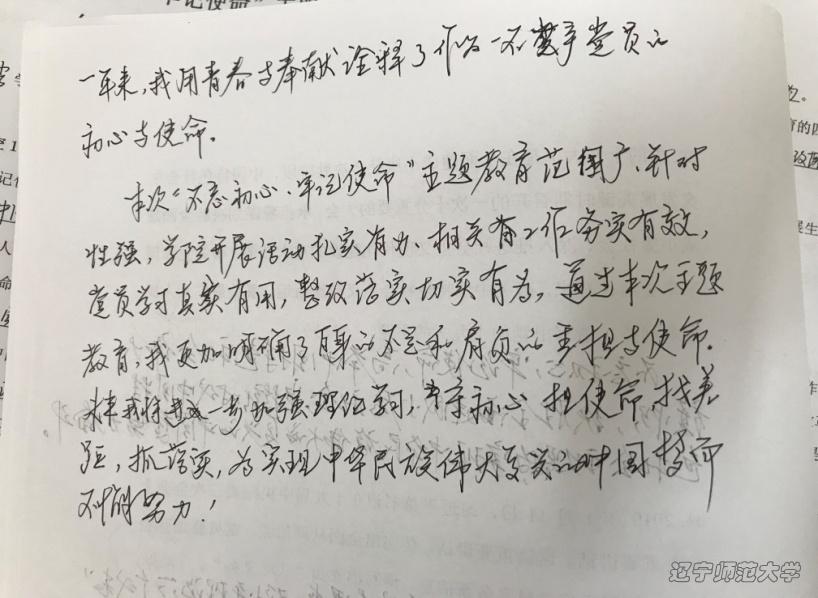 一年来，我用青春与奉献诠释了作为一名党员的
初心与使命。
本次“不忘初心、牢记使命”主题教育范围广、针对
性强，学院开展活动扎实有力、相关工作务实有效，
党员学习真实有用，整改落实切实有为，通过本次主题
教育，我更加明确了自身的不足和肩负的重担与使命。
未来我将进一步加强理论学习，守初心，担使命，找差
距，抓落实，为实现中华民族伟大复兴的中国梦而
不懈努力！
辽宁师范大学